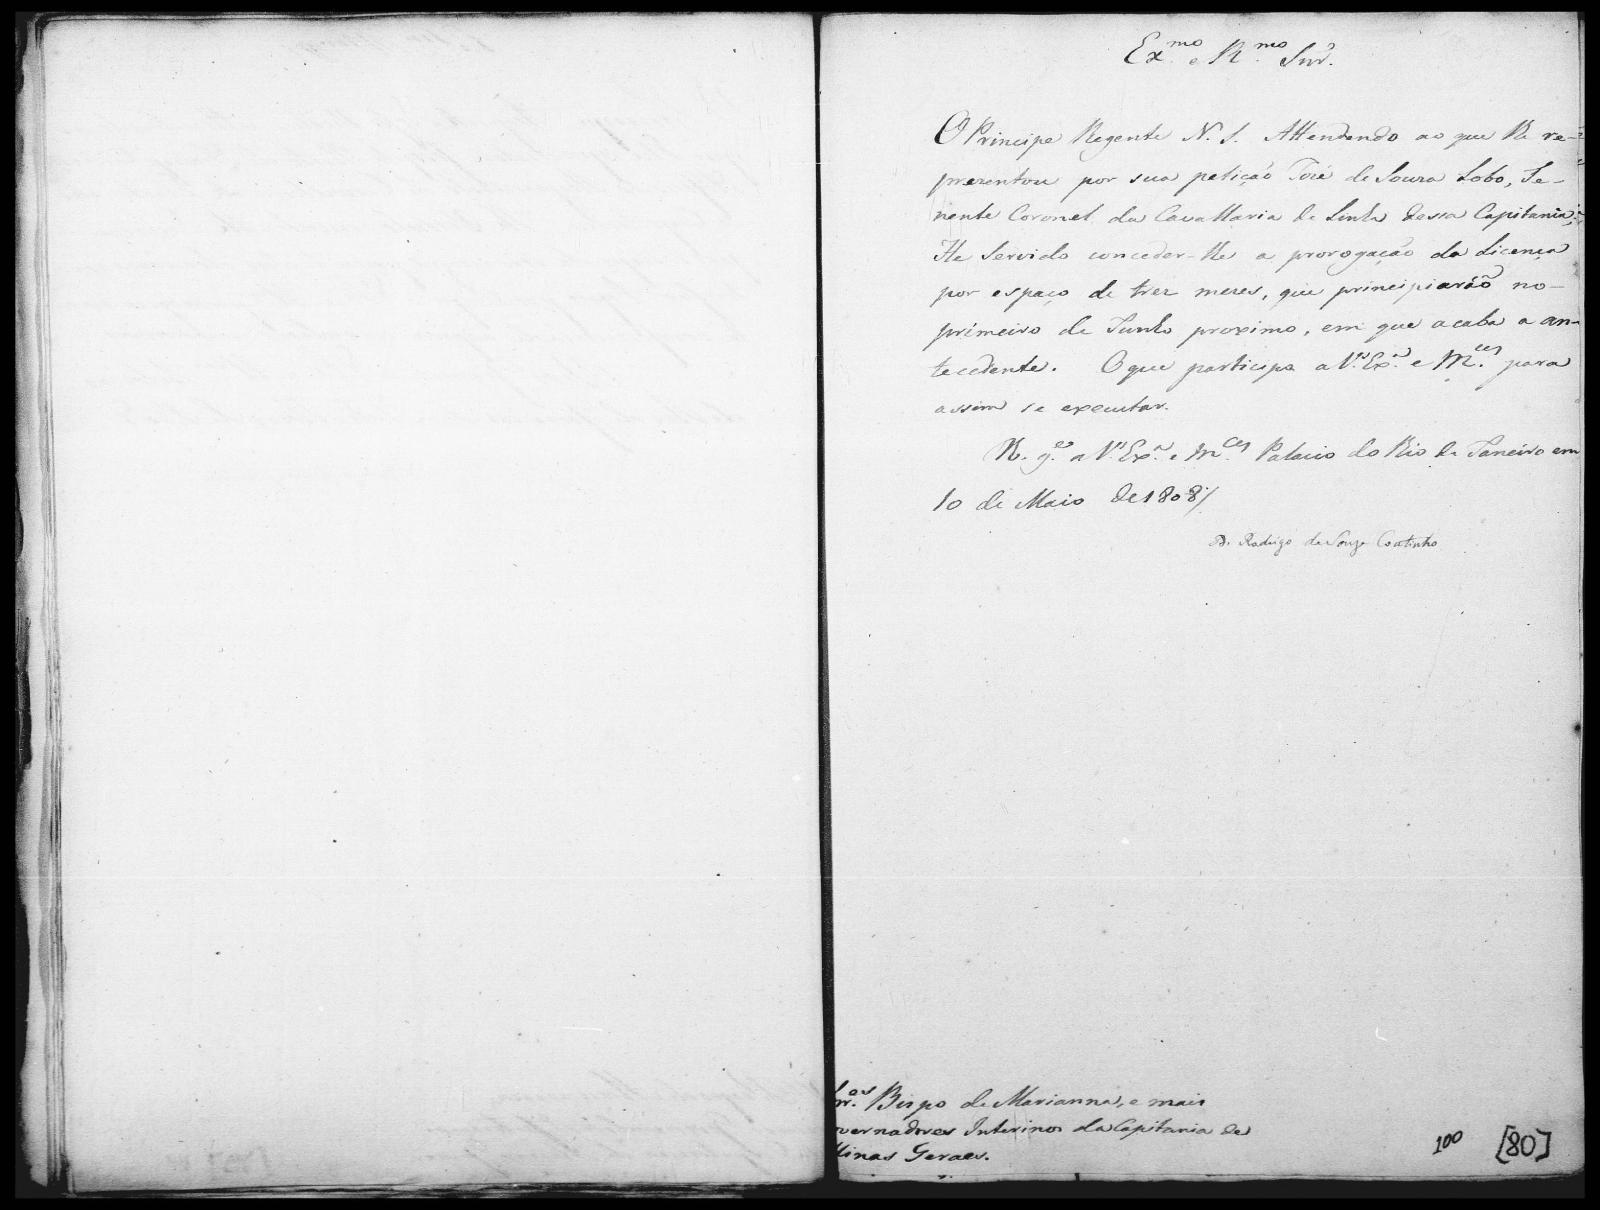 Ex.mo e R.mo Snr.
O Principe Regente N. S. Attendendo ao que lhe re-
prezentou por sua petiçaõ Jozé de Souza Lobo, Te-
nente Coronel da Cavallaria de Linha dessa Capitania;
He Servido conceder-lhe a prorogaçaõ da Licença
por espaço de trez mezes, que principiaráõ no
primeiro de Junho proximo, em que acaba a an-
tecedente. O que participo a V. Ex.a e M.ces para
assim se executar.
D. g.e a V. Ex.a e M.ces Palacio do Rio de Janeiro em
10 de Maio de 1808
D. Rodrigo de Souza Coutinho
Bispo de Marianna, e mais
vernadores Interinos da Capitania de
Minas Geraes.
100 [80]